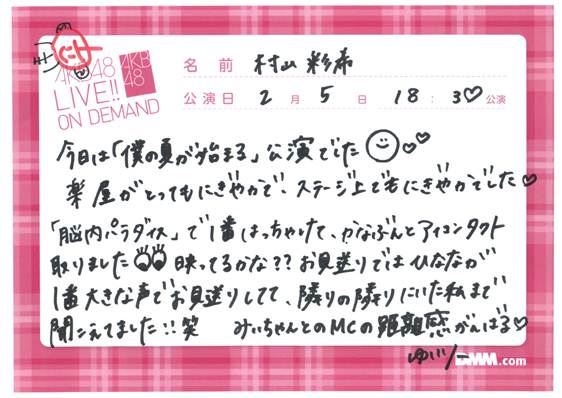 AKB48
LIVE!!
ON DEMAND
AKB
48
名前 村山 彩希
公演日 2月5日 18:30公演
今日は「僕の夏が始まる」公演でした
楽屋がとってもにぎやかで、ステージ上でもにぎやかでした
「脳内パラダイス」で1番はっちゃけて、かなぶんとアイコンタクト
取りました 映ってるかな?? お見送りではひななが
1番大きな声でお見送りしてて、隣りの隣りにいた私まで
聞こえてました!!笑 みぃちゃんとのMCの距離感がんばる
ゆいりー
DMM.com